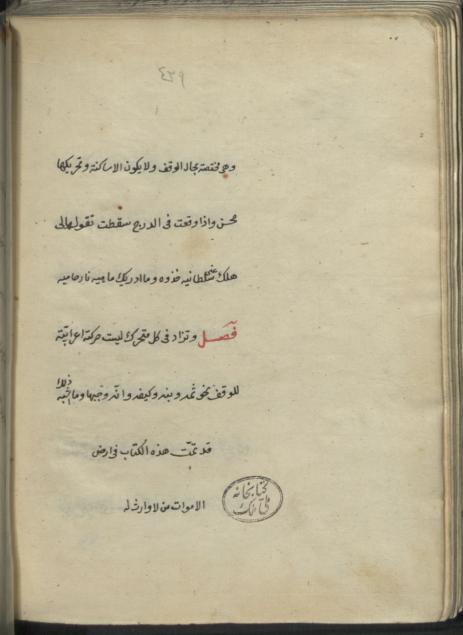 ٤٣٩
وهي مختصة بحال الوقف ولا يكون الا ساكنة وتحريكها
لحن واذا وقعت فى الدرج سقطت تقول مالى
هلك عنى سلطانيه خذوه وما ادريك ماهيه نار حاميه
فصل وتزاد فى كل متحرك ليست حركته اعرابية
للوقف نحو ثمه وبنيه وكيفه وانه وحيهله وما اشبه ذلك
قد تمّت هذه الكتاب فى ارض
الاموات من لا وارث له
كتابخانه
ملى ملك